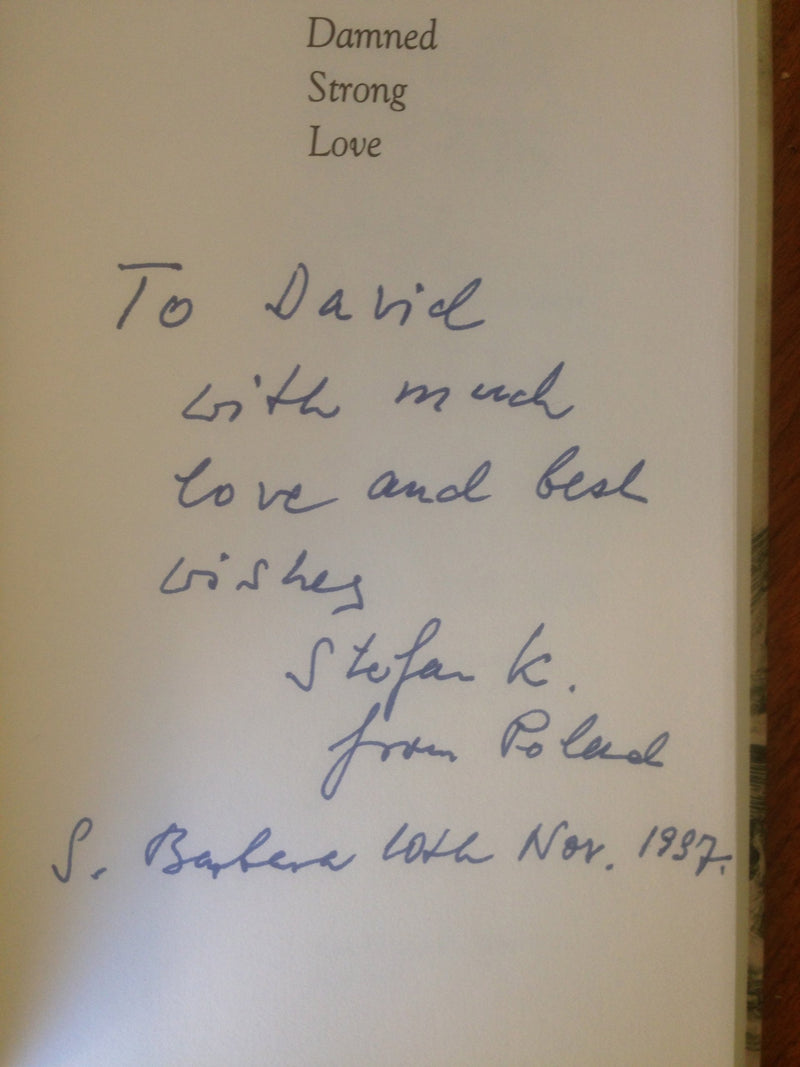 Damned
Strong
Love
To David
with much
love and best
wishes
Stefan K.
from Poland
S. Barbara 10th Nov. 1997.